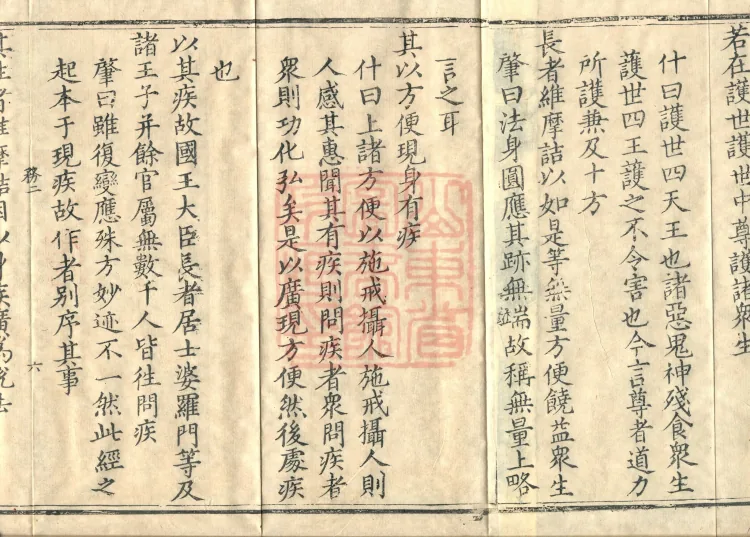 若在護世護世中尊護諸衆生
什曰護世四天王也諸惡鬼神殘食衆生
護世四王護之不令害也今言尊者道力
所護兼及十方
長者維摩詰以如是等無量方便饒益衆生
肇曰法身圓應其跡無端故稱無量上略
言之耳
其以方便現身有疾
什曰上諸方便以施戒攝人施戒攝人則
人感其惠聞其有疾則問疾者衆問疾者
衆則功化弘矣是以廣現方便然後處疾
也
以其疾故國王大臣長者居士婆羅門等及
諸王子并餘官屬無數千人皆往問疾
肇曰雖復變應殊方妙迹不一然此經之
起本于現疾故作者别序其事
務二 六
其往者維摩詰因以身疾廣爲說法
山東省